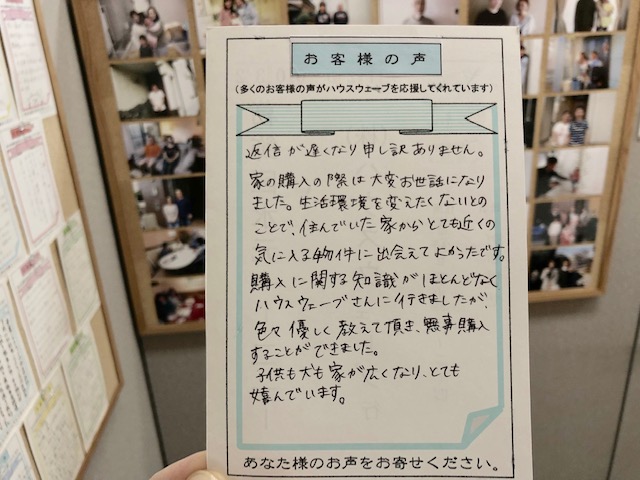 お客様の声
(多くのお客様の声がハウスウェーブを応援してくれています)
返信が遅くなり申し訳ありません。
家の購入の際は大変お世話になり
ました。生活環境を変えたくないとの
ことで、住んでいた家からとても近くの
気に入る物件に出会えてよかったです。
購入に関する知識がほとんどなく
ハウスウェーブさんに行きましたが、
色々優しく教えて頂き、無事購入
することができました。
子供も犬も家が広くなり、とても
嬉んでいます。
あなた様のお声をお寄せください。